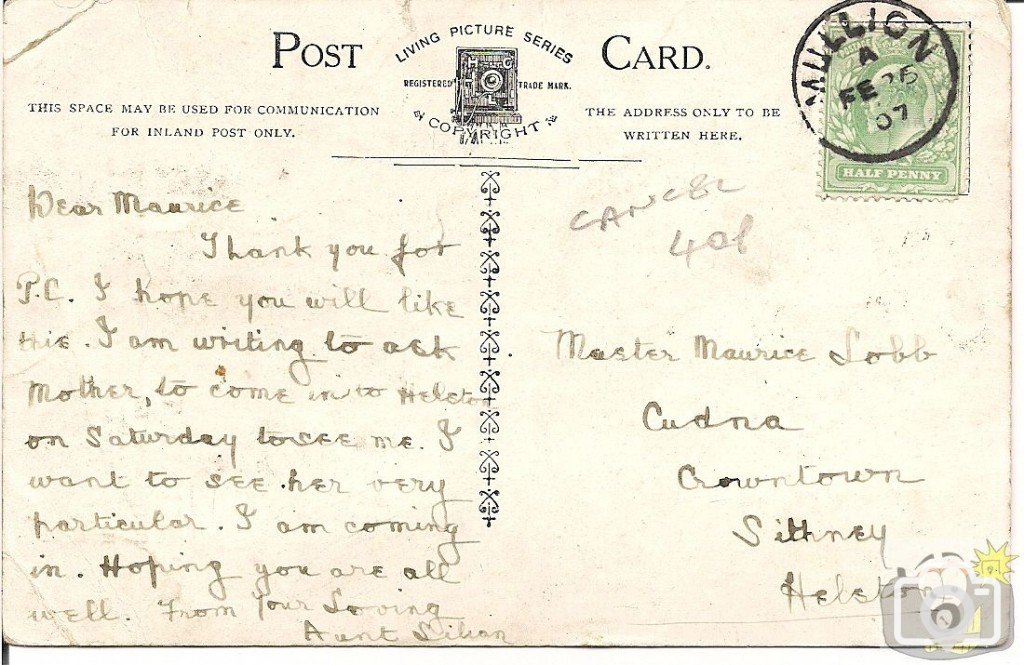 POST CARD.
LIVING PICTURE SERIES
REGISTERED TRADE MARK.
H C
COPYRIGHT
THIS SPACE MAY BE USED FOR COMMUNICATION
FOR INLAND POST ONLY.
THE ADDRESS ONLY TO BE
WRITTEN HERE.
MULLION
A
FE 26
07
HALF PENNY
CANCEL
401
Dear Maurice
Thank you for
P.C. I hope you will like
this. I am writing to ask
Mother, to come in to Helston
on Saturday to see me. I
want to see her very
particular. I am coming
in. Hoping you are all
well. From Your Loving
Aunt Lilian
Master Maurice Lobb
Cudna
Crowntown
Sithney
Helston